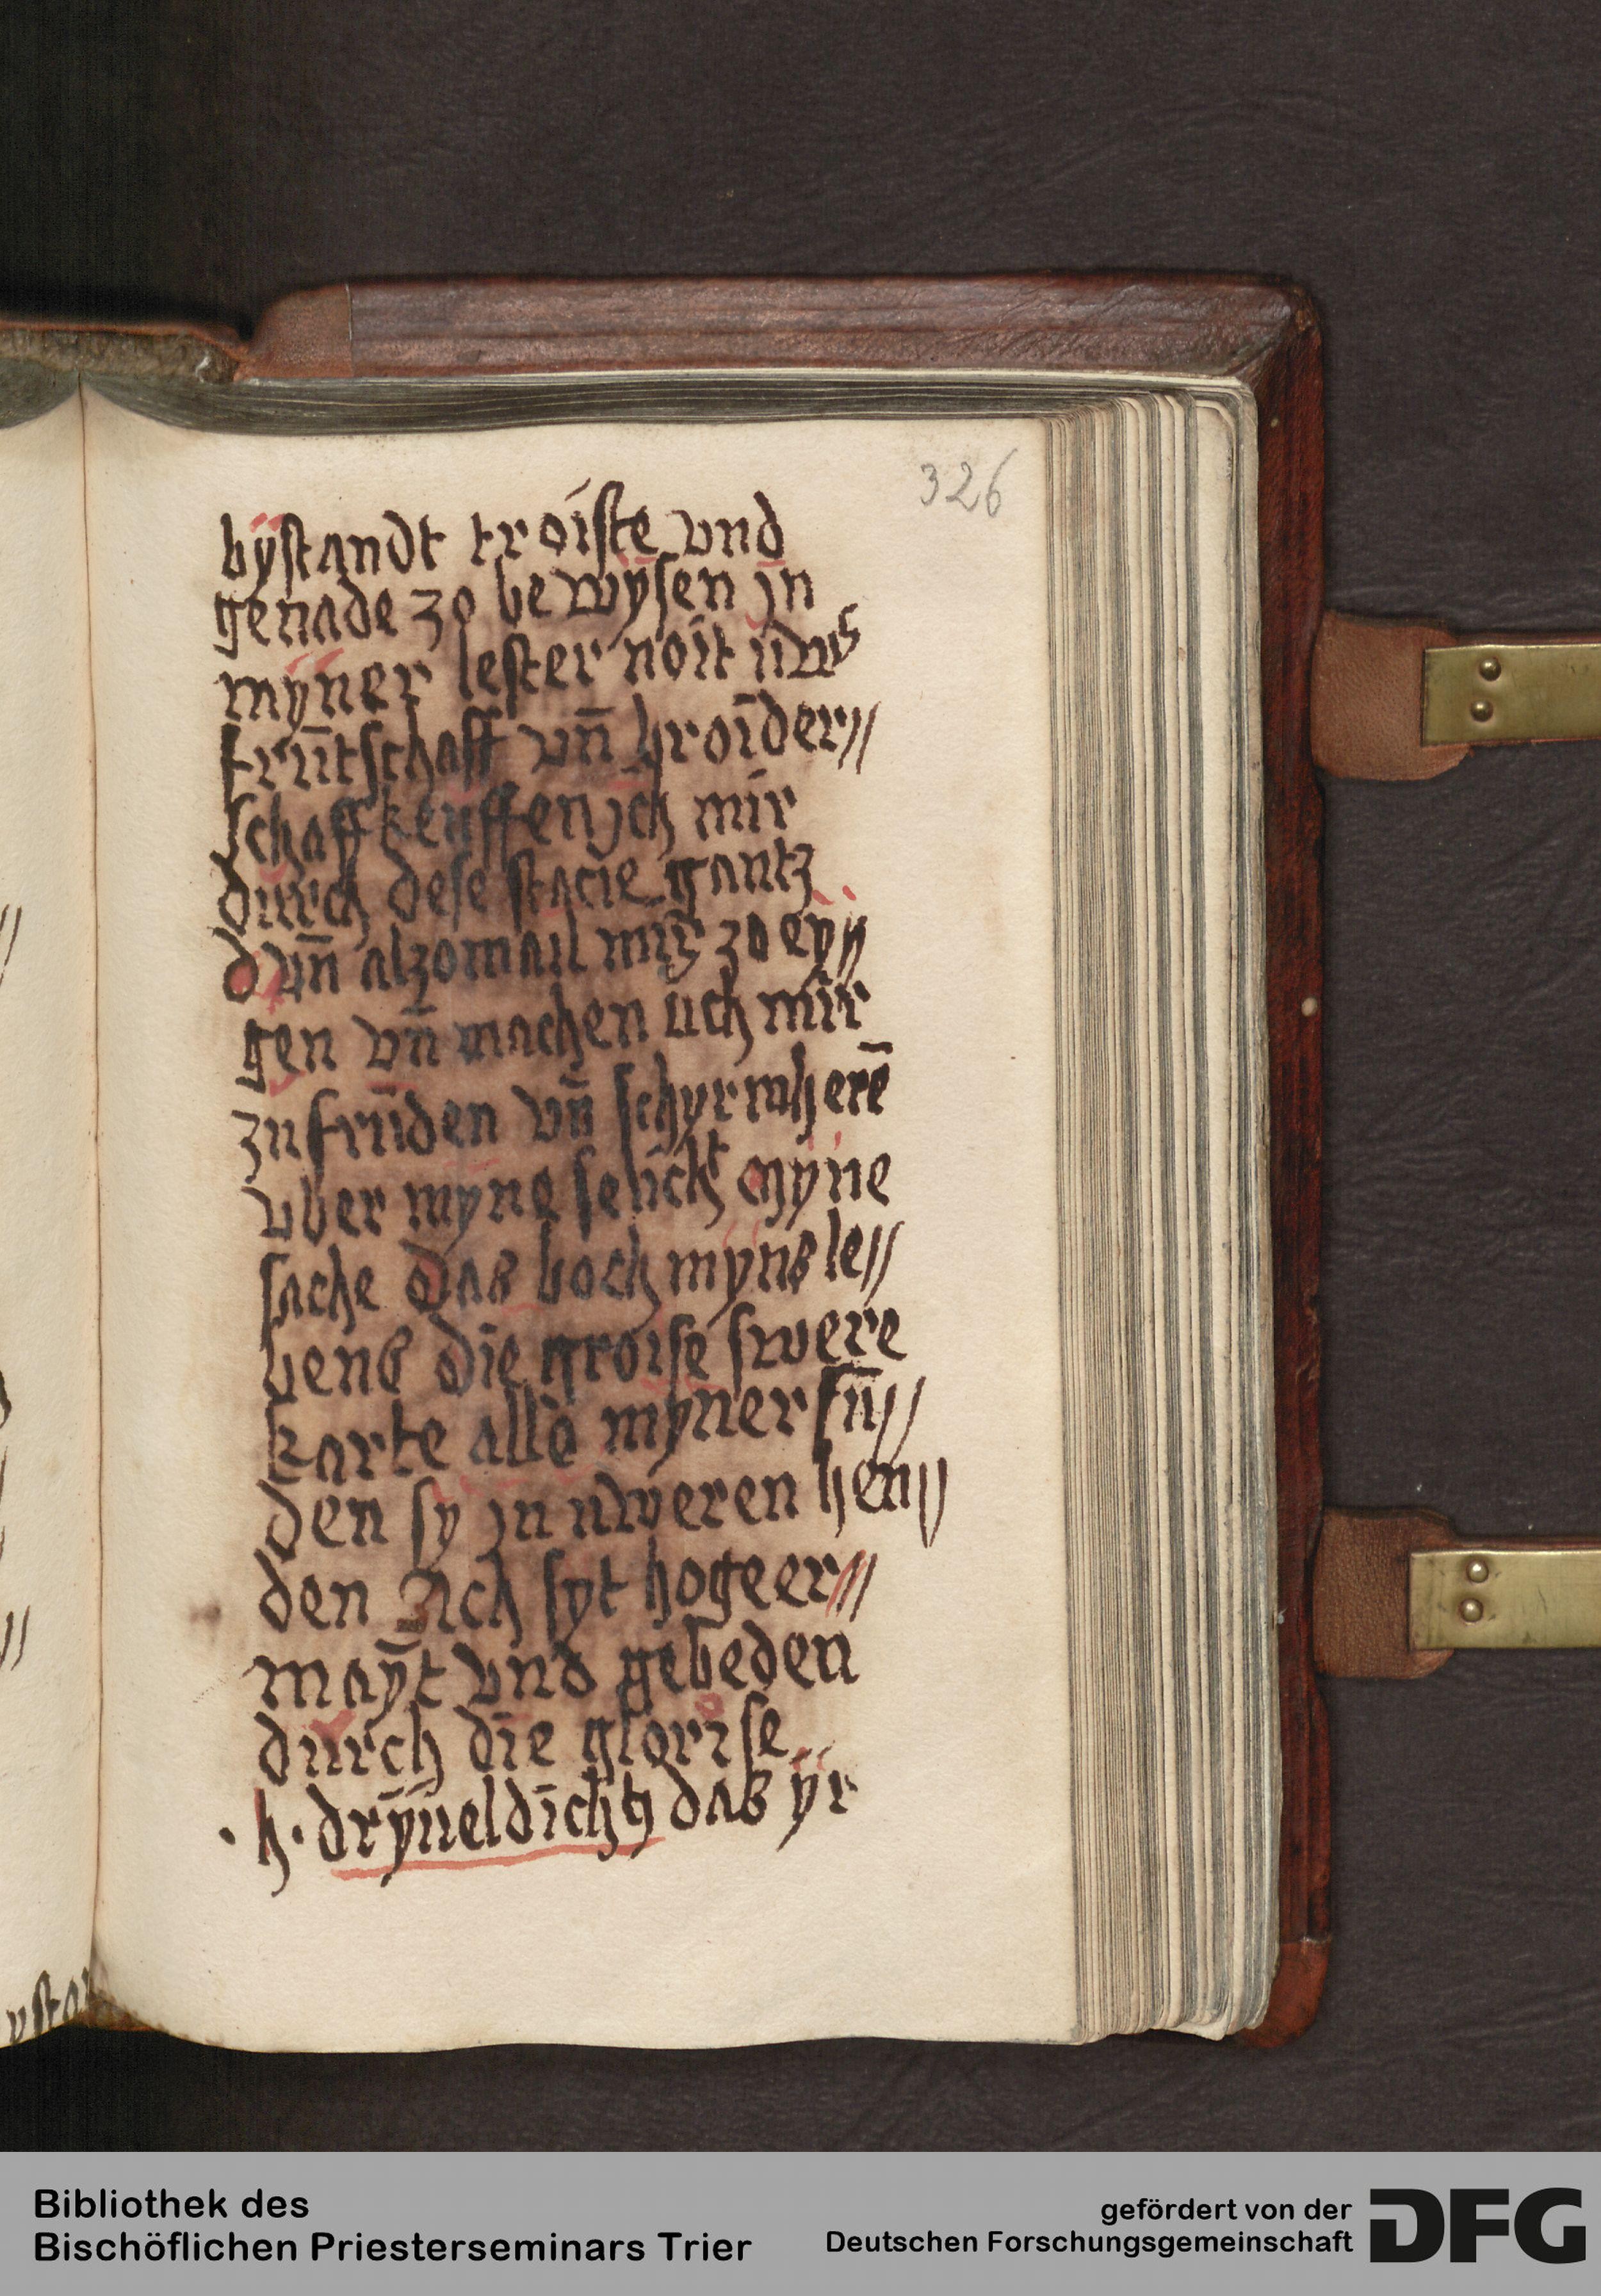 326
bÿstandt troiste vnd
genade zo bewÿsen jn
mÿner lester noit uwˢ
frūtschaff vn̄ broider//
schaff keuffen jch mir
durch dese stacie gantz
vn̄ alzomail mir zo ey//
gen vn̄ machen uch mir
zu frūden vn̄ schyrmherē
vber myne selickt myne
sache das boch myns le//
bens die groise swere
karte allo myner sū//
den sy jn uweren hen//
den Ach syt hogeer//
mayt vnd gebeden
durch die glorise
.h. drÿueldicht das ÿr
ystan
Bibliothek des
Bischöflichen Priesterseminars Trier
gefördert von der
Deutschen Forschungsgemeinschaft
DFG